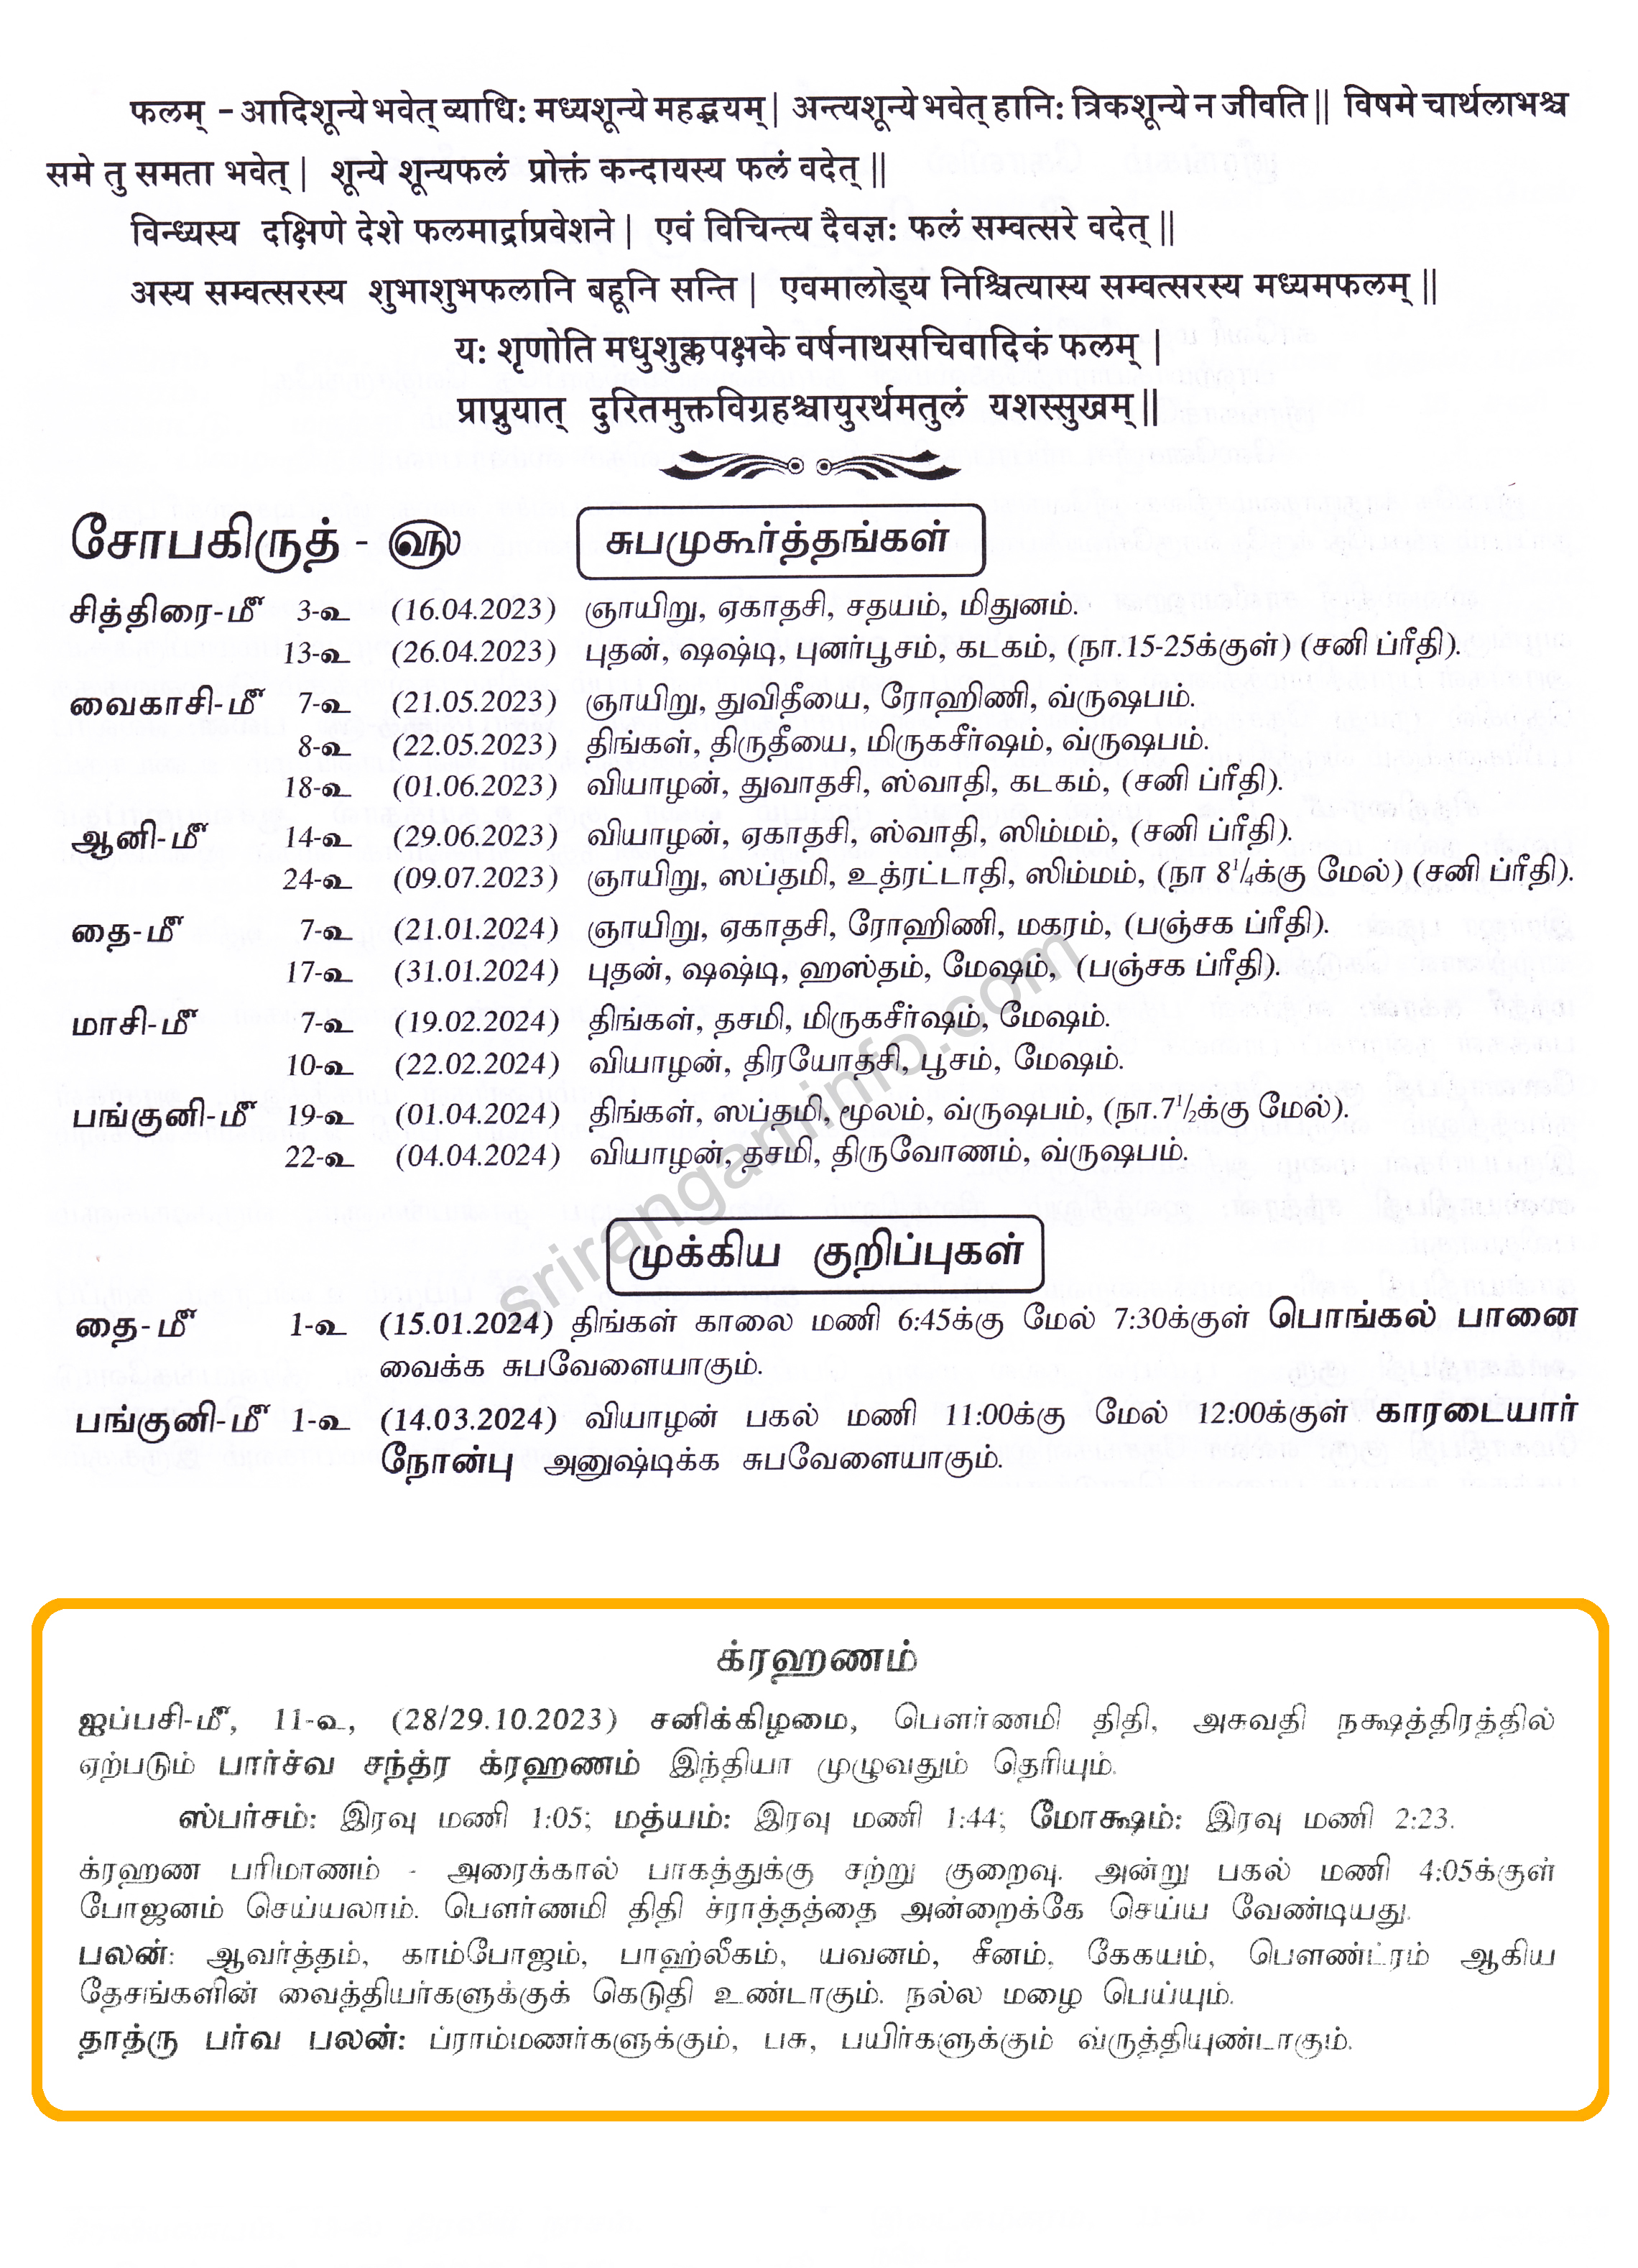 फलम् - आदिशून्ये भवेत् व्याधि: मध्यशून्ये महद्भयम्| अन्त्यशून्ये भवेत् हानि: त्रिकशून्ये न जीवति|| विषमे चार्थलाभश्च
समे तु समता भवेत्| शून्ये शून्यफलं प्रोक्तं कन्दायस्य फलं वदेत्||
विन्ध्यस्य दक्षिणे देशे फलमार्द्राप्रवेशने| एवं विचिन्त्य दैवज्ञ: फलं सम्वत्सरे वदेत्||
अस्य सम्वत्सरस्य शुभाशुभफलानि बहूनि सन्ति| एवमालोड्यं निश्चित्यास्य सम्वत्सरस्य मध्यमफलम्||
य: शृणोति मधुशुक्लपक्षके वर्षनाथसचिवादिकं फलम्|
प्राप्नुयात् दुरितमुक्तविग्रहश्चायुरर्थमतुलं यशस्सुखम्||
சோபகிருத் - ௵ சுபமுகூர்த்தங்கள்
சித்திரை-௴ 3-உ (16.04.2023) ஞாயிறு, ஏகாதசி, சதயம், மிதுனம்.
13-உ (26.04.2023) புதன், ஷஷ்டி, புனர்பூசம், கடகம், (நா.15-25க்குள்) (சனி ப்ரீதி).
வைகாசி-௴ 7-உ (21.05.2023) ஞாயிறு, துவிதீயை, ரோஹிணி, வ்ருஷபம்.
8-உ (22.05.2023) திங்கள், திருதீயை, மிருகசீர்ஷம், வ்ருஷபம்.
18-உ (01.06.2023) வியாழன், துவாதசி, ஸ்வாதி, கடகம், (சனி ப்ரீதி).
ஆனி-௴ 14-உ (29.06.2023) வியாழன், ஏகாதசி, ஸ்வாதி, ஸிம்மம், (சனி ப்ரீதி).
24-உ (09.07.2023) ஞாயிறு, ஸப்தமி, உத்ரட்டாதி, ஸிம்மம், (நா 8¼க்கு மேல்) (சனி ப்ரீதி).
தை-௴ 7-உ (21.01.2024) ஞாயிறு, ஏகாதசி, ரோஹிணி, மகரம், (பஞ்சக ப்ரீதி).
17-உ (31.01.2024) புதன், ஷஷ்டி, ஹஸ்தம், மேஷம், (பஞ்சக ப்ரீதி).
மாசி-௴ 7-உ (19.02.2024) திங்கள், தசமி, மிருகசீர்ஷம், மேஷம்.
10-உ (22.02.2024) வியாழன், திரயோதசி, பூசம், மேஷம்.
பங்குனி-௴ 19-உ (01.04.2024) திங்கள், ஸப்தமி, மூலம், வ்ருஷபம், (நா.7½க்கு மேல்).
22-உ (04.04.2024) வியாழன், தசமி, திருவோணம், வ்ருஷபம்.
srirangaminfo.com
முக்கிய குறிப்புகள்
தை-௴ 1-உ (15.01.2024) திங்கள் காலை மணி 6:45க்கு மேல் 7:30க்குள் பொங்கல் பானை
வைக்க சுபவேளையாகும்.
பங்குனி-௴ 1-உ (14.03.2024) வியாழன் பகல் மணி 11:00க்கு மேல் 12:00க்குள் காரடையார்
நோன்பு அனுஷ்டிக்க சுபவேளையாகும்.
க்ரஹணம்
ஐப்பசி-௴, 11-உ, (28/29.10.2023) சனிக்கிழமை, பௌர்ணமி திதி, அசுவதி நக்ஷத்திரத்தில்
ஏற்படும் பார்ச்வ சந்த்ர க்ரஹணம் இந்தியா முழுவதும் தெரியும்.
ஸ்பர்சம்: இரவு மணி 1:05; மத்யம்: இரவு மணி 1:44; மோக்ஷம்: இரவு மணி 2:23.
க்ரஹண பரிமாணம் - அரைக்கால் பாகத்துக்கு சற்று குறைவு. அன்று பகல் மணி 4:05க்குள்
போஜனம் செய்யலாம். பௌர்ணமி திதி ச்ராத்தத்தை அன்றைக்கே செய்ய வேண்டியது.
பலன்: ஆவர்த்தம், காம்போஜம், பாஹ்லீகம், யவனம், சீனம், கேகயம், பௌண்ட்ரம் ஆகிய
தேசங்களின் வைத்தியர்களுக்குக் கெடுதி உண்டாகும். நல்ல மழை பெய்யும்.
தாத்ரு பர்வ பலன்: ப்ராம்மணர்களுக்கும், பசு, பயிர்களுக்கும் வ்ருத்தியுண்டாகும்.